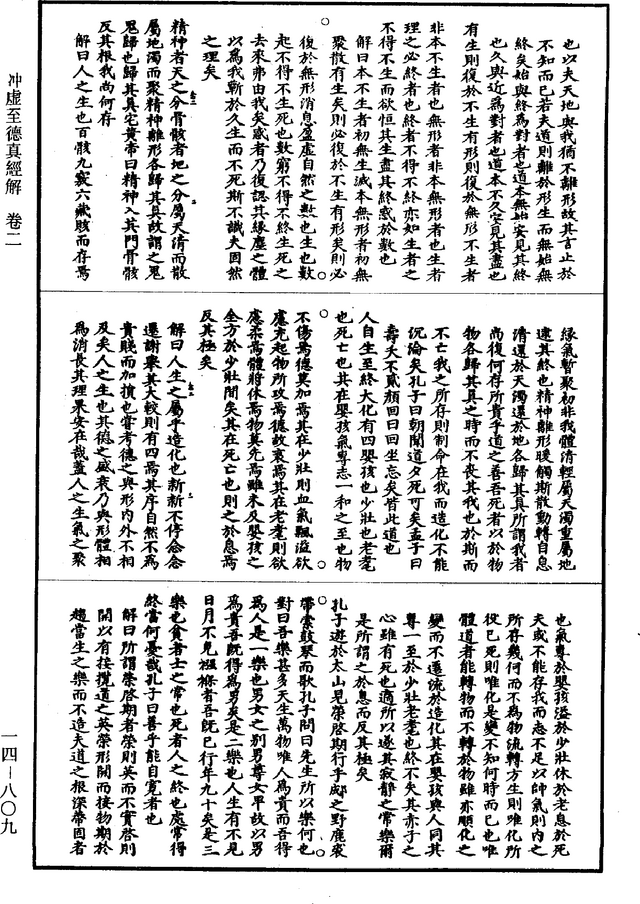 冲虛至德真經解 卷二
一四－八〇九
也以夫天地與我猶不離形故其言止於
不知而已若夫道則離於形生而無始無
終矣始與終為對者也道本無始安見其終
也久與近為對者也道本不久安見其盡也
有生則復於不生有形則復於無形不生者
非本不生者也無形者非本無形者也生者
理之必終者也終者不得不終亦如生者之
不得不生而欲恒其生盡其終惑於數也
解曰本不生者初無生滅本無形者初無
聚散有生矣則必復於不生有形矣則必
復於無形消息盈虛自然之數也生也數
起不得不生死也數窮不得不終生死之
去來弗由我矣惑者乃復認其緣塵之體
以為我蘄於久生而不死斯不識夫固然
之理矣
精神者天之分骨骸者地之分屬天清而散
屬地濁而聚精神離形各歸其真故謂之鬼
鬼歸也歸其真宅黃帝曰精神入其門骨骸
反其根我尚何存
解曰人之生也百骸九竅六藏賅而存焉
緣氣暫聚初非我體清輕屬天濁重屬地
逮其終也精神離形暖觸斯散動轉自息
清還於天濁還於地各歸其真所謂我者
尚復何存所貴乎道之善吾死者以於物
物各歸其真之時而不喪其我也於斯而
不亡我之所存則制命在我而造化不能
沉淪矣孔子曰朝聞道夕死可矣孟子曰
壽夭不貳顏回曰回坐忘矣皆此道也
人自生至終大化有四嬰孩也少壯也老耄
也死亡也其在嬰孩氣專志一和之至也物
不傷焉德莫加焉其在少壯則血氣飄溢欲
慮充起物所攻焉德故衰焉其在老耄則欲
慮柔焉體將休焉物莫先焉雖未及嬰孩之
全方於少壯間矣其在死亡也則之於息焉
反其極矣
解曰人生之屬乎造化也新新不停念念
還謝舉其大較則有四焉其序自然不為
貴賤而加損也嘗考德之與形內外不相
及矣人之生也其德之盛衰乃與形體相
為消長其理果安在哉蓋人之生氣之聚
也氣專於嬰孩溢於少壯休於老息於死
夫或不能存我而志不足以帥氣則內之
所存幾何而不為物流轉方生則唯化所
役已死則唯化是變不知何時而已也唯
體道者能轉物而不轉於物雖亦順化之
變而不還流於造化其在嬰孩與人同其
專一至於少壯老耄也終不失其赤子之
心雖有死也適所以遂其寂靜之常樂爾
是所謂之於息而反其極矣
孔子遊於太山見榮啟期行乎郕之野鹿裘
帶索鼓琴而歌孔子問曰先生所以樂何也
對曰吾樂甚多天生萬物唯人為貴而吾得
為人是一樂也男女之別男尊女卑故以男
為貴吾既得為男矣是二樂也人生有不見
日月不免襁褓者吾既已行年九十矣是三
樂也貧者士之常也死者人之終也處常得
終當何憂哉孔子曰善乎能自寬者也
解曰所謂榮啟期者榮則英而不實啟則
開以有接攬道之英榮形開而接物期於
趨當生之樂而不造夫道之根深蒂固者